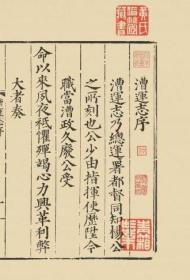 漕運志序
漕運志乃總運署都督同知楊公
之所刻也公少由指揮使歷陞今
職當漕政久廢公受
命以來夙夜祗懼殫竭心力興革利弊
大者奏